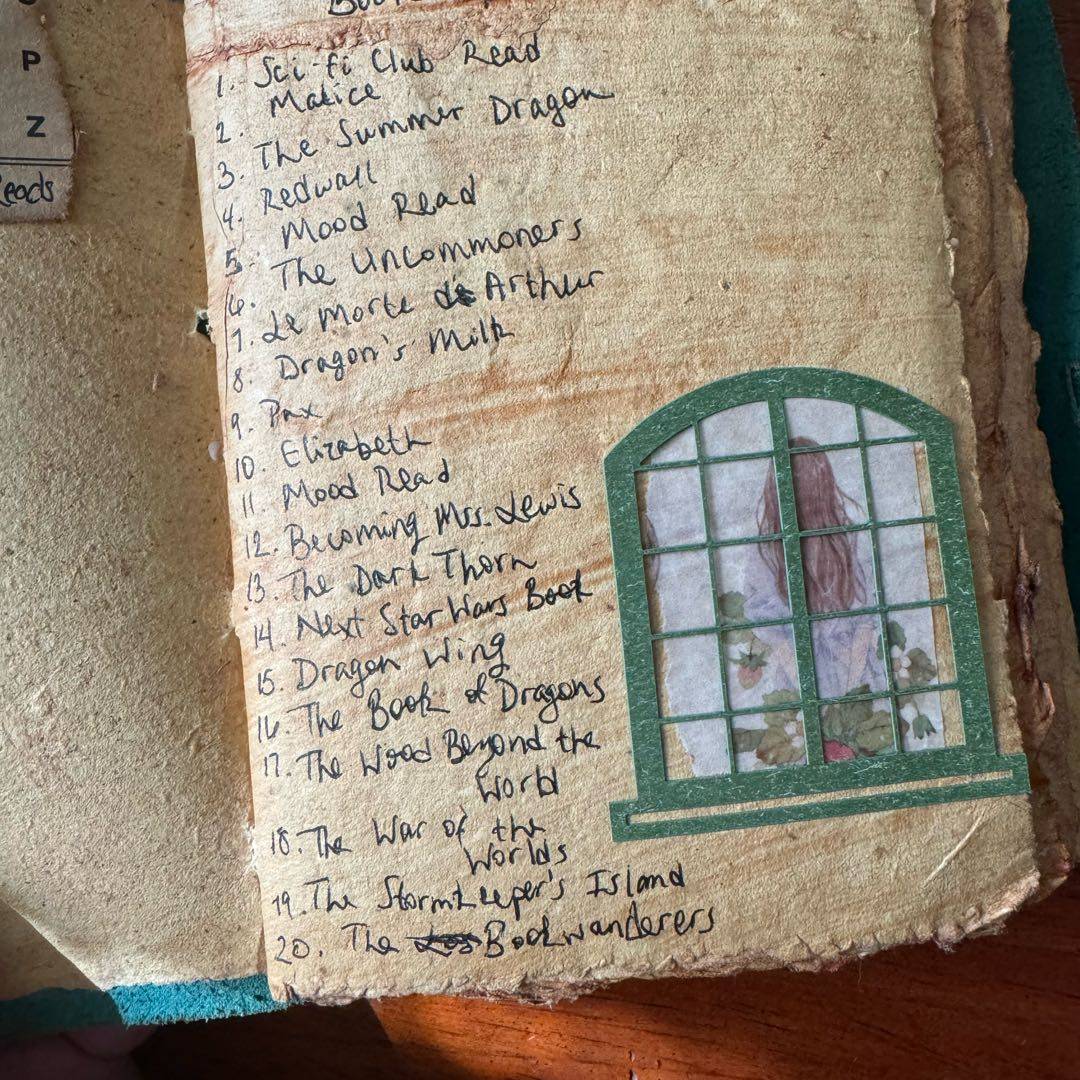 P
Z
Reads
1. Sci-fi Club Read
2. Malice
3. The Summer Dragon
4. Redwall
5. Mood Read
6. The Uncommoners
7. Le Morte de Arthur
8. Dragon's Milk
9. Pax
10. Elizabeth
11 Mood Read
12. Becoming Mrs. Lewis
13. The Dark Thorn
14. Next Star Wars Book
15. Dragon Wing
16. The Book of Dragons
17. The Wood Beyond the
World
18. The War of the
Worlds
19. The Stormkeeper's Island
20. The Bookwanderers